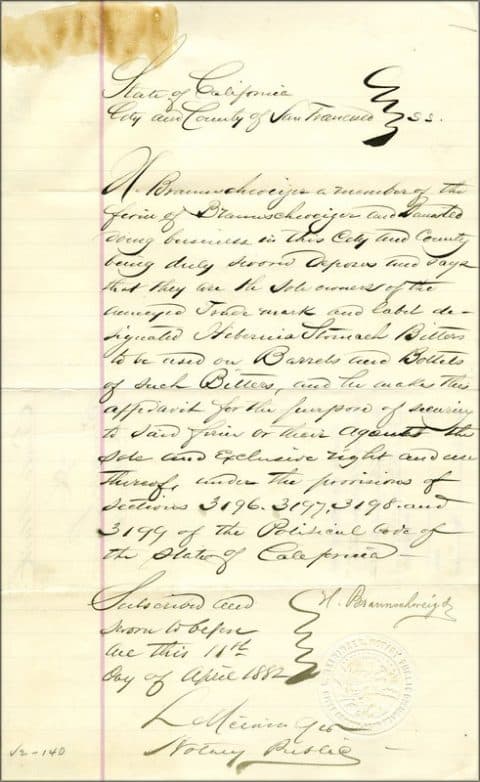 State of California
City and County of San Francisco ss.
H. Braunschweiger a member of the
firm of Braunschweiger and
doing business in this City and County
being duly sworn deposes and says
that they are the sole owners of the
annexed Trade mark and label de-
signated Hibernia Stomach Bitters
to be used on Barrels and Bottles
of such Bitters, and he makes this
affidavit for the purpose of securing
to said firm or their agents the
sole and exclusive right and use
thereof, under the provisions of
sections 3196. 3197, 3198. and
3199 of the Political Code of
the State of California
Subscribed and
H. Braunschweiger
sworn to before
me this 11th
day of April 1882
Notary Public